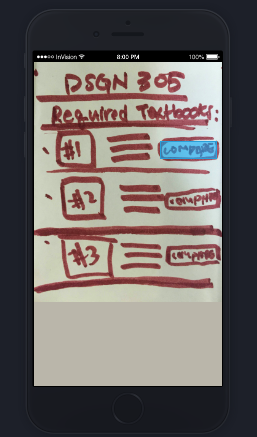 InVision 8:00 PM 100%
DSGN 305
Required Textbooks:
#1 COMPARE
#2 COMPARE
#3 COMPARE